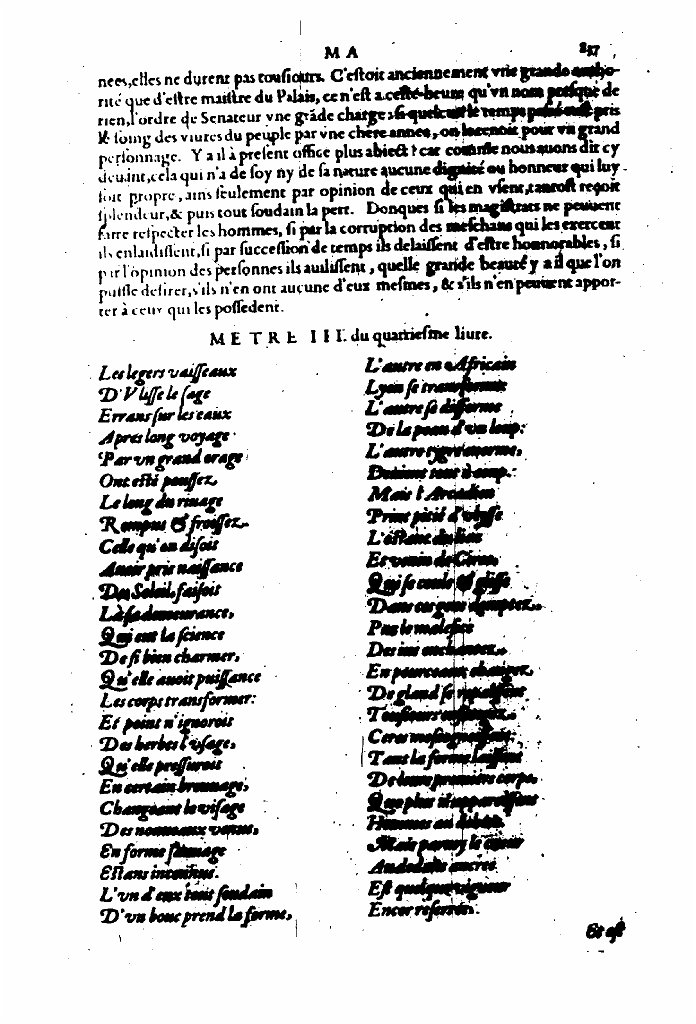 MA
837
nees, elles ne durent pas tousiours. C'estoit anciennement vne grande autho-
rité que d'estre maistre du Palais, ce n'est à ceste heure qu'vn nom
rien, l'ordre de Senateur vne grãde charge, si quelcun le temps passé est pris
le soing des viures du peuple par vne chere annee, on pour vn grand
personnage. Y a il à present office plus abiect? car comme nous auons dit cy
deuãnt, cela qui n'a de soy ny de sa nature aucune dignité ou honneur qui luy
soit propre, ains seulement par opinion de ceux qui en vsent, tantost reçoit
splendeur, & puis tout soudain la pert. Donques si les magistrats ne peuuent
faire respecter les hommes, si par la corruption des meschans qui les exercent
ils enlaidissent, si par succession de temps ils delaissent d'estre honnorables, si
par l'opinion des personnes ils auilissent, quelle grande beauté y a il que l'on
puisse desirer, s'ils n'en ont aucune d'eux mesmes, & s'ils n'en peuuent appor-
ter à ceux qui les possedent.
METRE III. du quatriesme liure.
Les legers vaisseaux
D'Vlisse le sage
Errans sur les eaux
Apres long voyage
Par vn grand orage
Ont esté poussez,
Le long du riuage
Rompus & froissez.
Celle qu'on disoit
Auoir pris naissance
Du Soleil, faisoit
Là sa demeurance,
Qui eut la science
De si bien charmer,
Qu'elle auoit puissance
Les corps transformer:
Et point n'ignoroit
Des herbes l'vsage,
Qu'elle pressuroit
En certain breuuage,
Changeant le visage
Des nouueaux venus,
En forme sauuage
Estans intenus.
L'vn d'eux tout soudain
D'vn bouc prend la forme,
L'autre en Africain
Lyon se transforme
L'autre se difforme
De la peau d'vn loup:
L'autre tygre enorme,
Deuient tout à coup.
Mais l'Arcadien
Print pitié d'vlysse
L'ostant du lien
Et venin de Circe,
Qui se coule & glisse
Dans ces gens domptez.
Par le malefice
Des ius enchantez.
En pourceaux changez,
De gland se repaissent
Tousiours
Ceres
Tant la forme laissent
De leurs premiers corps,
Que plus n'apparoissent
Hommes au dehors.
Mais parmy le cueur
Audedans ancrée
Est quelque vigueur
Encor reserrée.
Et est